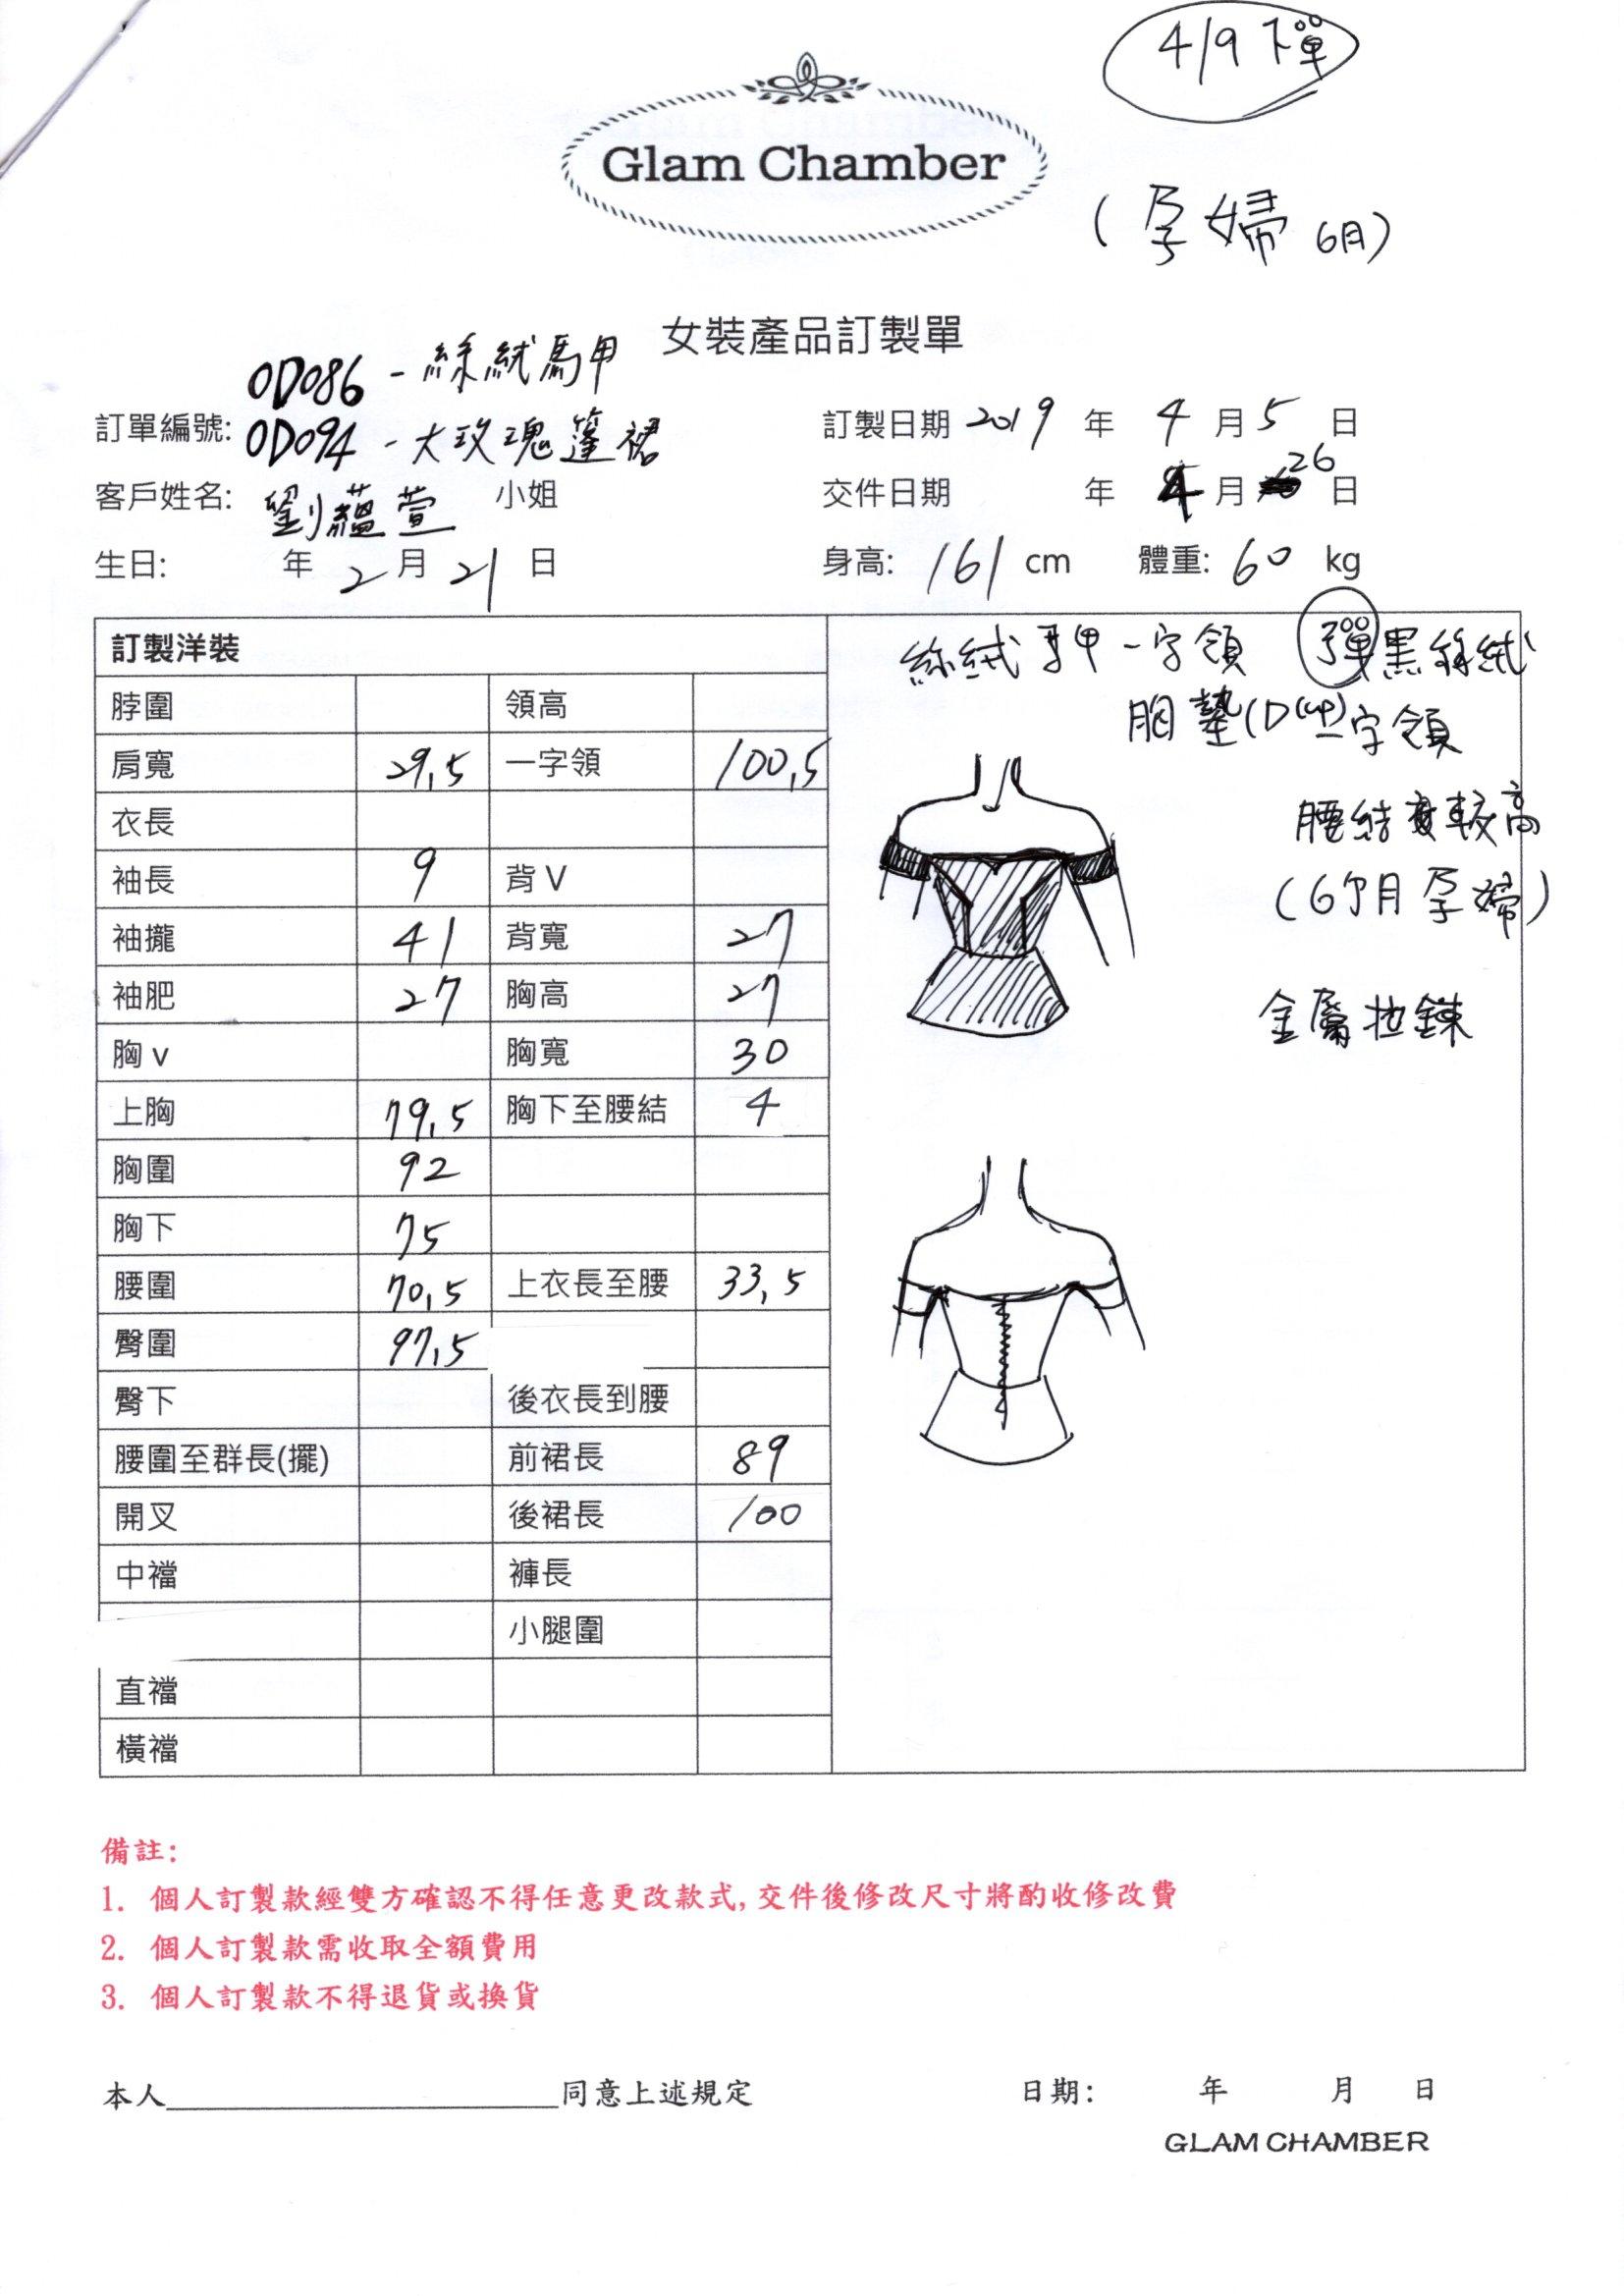 4/9 下單
Glam Chamber
(孕婦 6月)
女裝產品訂製單
OD086 - 絲絨馬甲
訂單編號: OD094 - 大玫瑰篷裙
訂製日期 2019 年 4 月 5 日
客戶姓名: 劉蘊萱 小姐
交件日期 年 4 月 26 日
生日: 年 2 月 21 日
身高: 161 cm 體重: 60 kg
訂製洋裝
脖圍 領高
肩寬 29,5 一字領 100,5
衣長
袖長 9 背 V
袖攏 41 背寬 27
袖肥 27 胸高 27
胸 v 胸寬 30
上胸 79,5 胸下至腰結 4
胸圍 92
胸下 75
腰圍 70,5 上衣長至腰 33,5
臀圍 97,5
臀下 後衣長到腰
腰圍至群長(擺) 前裙長 89
開叉 後裙長 100
中襠 褲長
小腿圍
直襠
橫襠
絲絨 甲 一字領 彈黑絲絨
胸墊(D cup) 一字領
腰結 較高
(6個月孕婦)
金屬拉鍊
備註:
1. 個人訂製款經雙方確認不得任意更改款式, 交件後修改尺寸將酌收修改費
2. 個人訂製款需收取全額費用
3. 個人訂製款不得退貨或換貨
本人 同意上述規定 日期: 年 月 日
GLAM CHAMBER